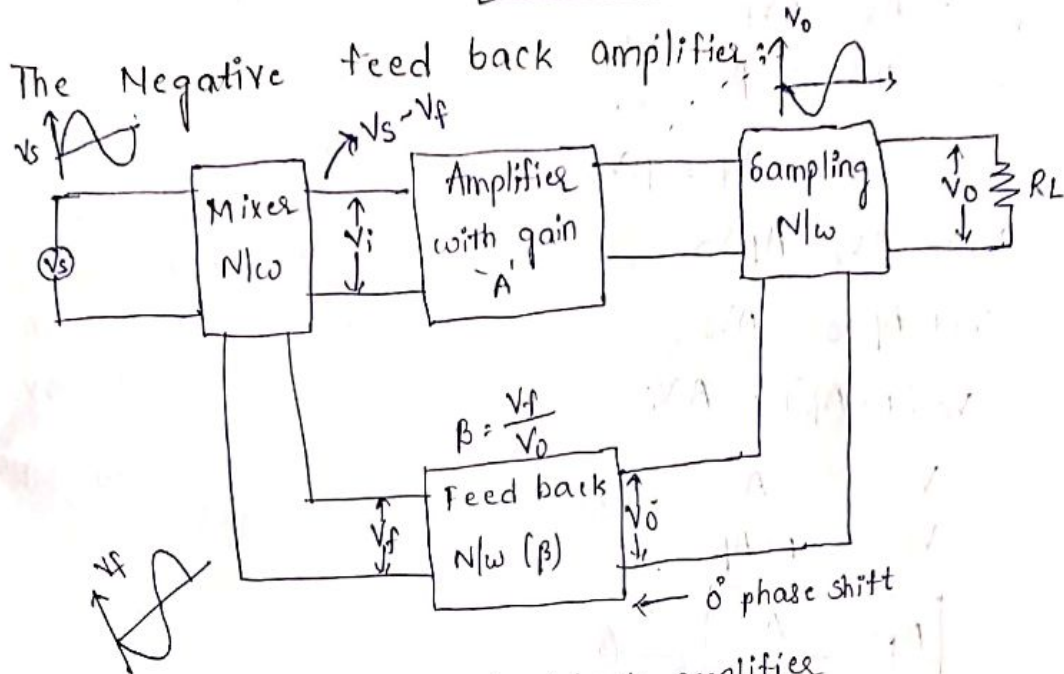 The Negative feed back amplifier:
Vo
Vs
Vs-Vf
Mixer
N/w
Vi
Amplifier
with gain
'A'
Sampling
N/w
Vo
RL
Vs
β = Vf/Vo
Feed back
N/w (β)
Vf
Vo
Vf
← 0° phase shift
amplifier